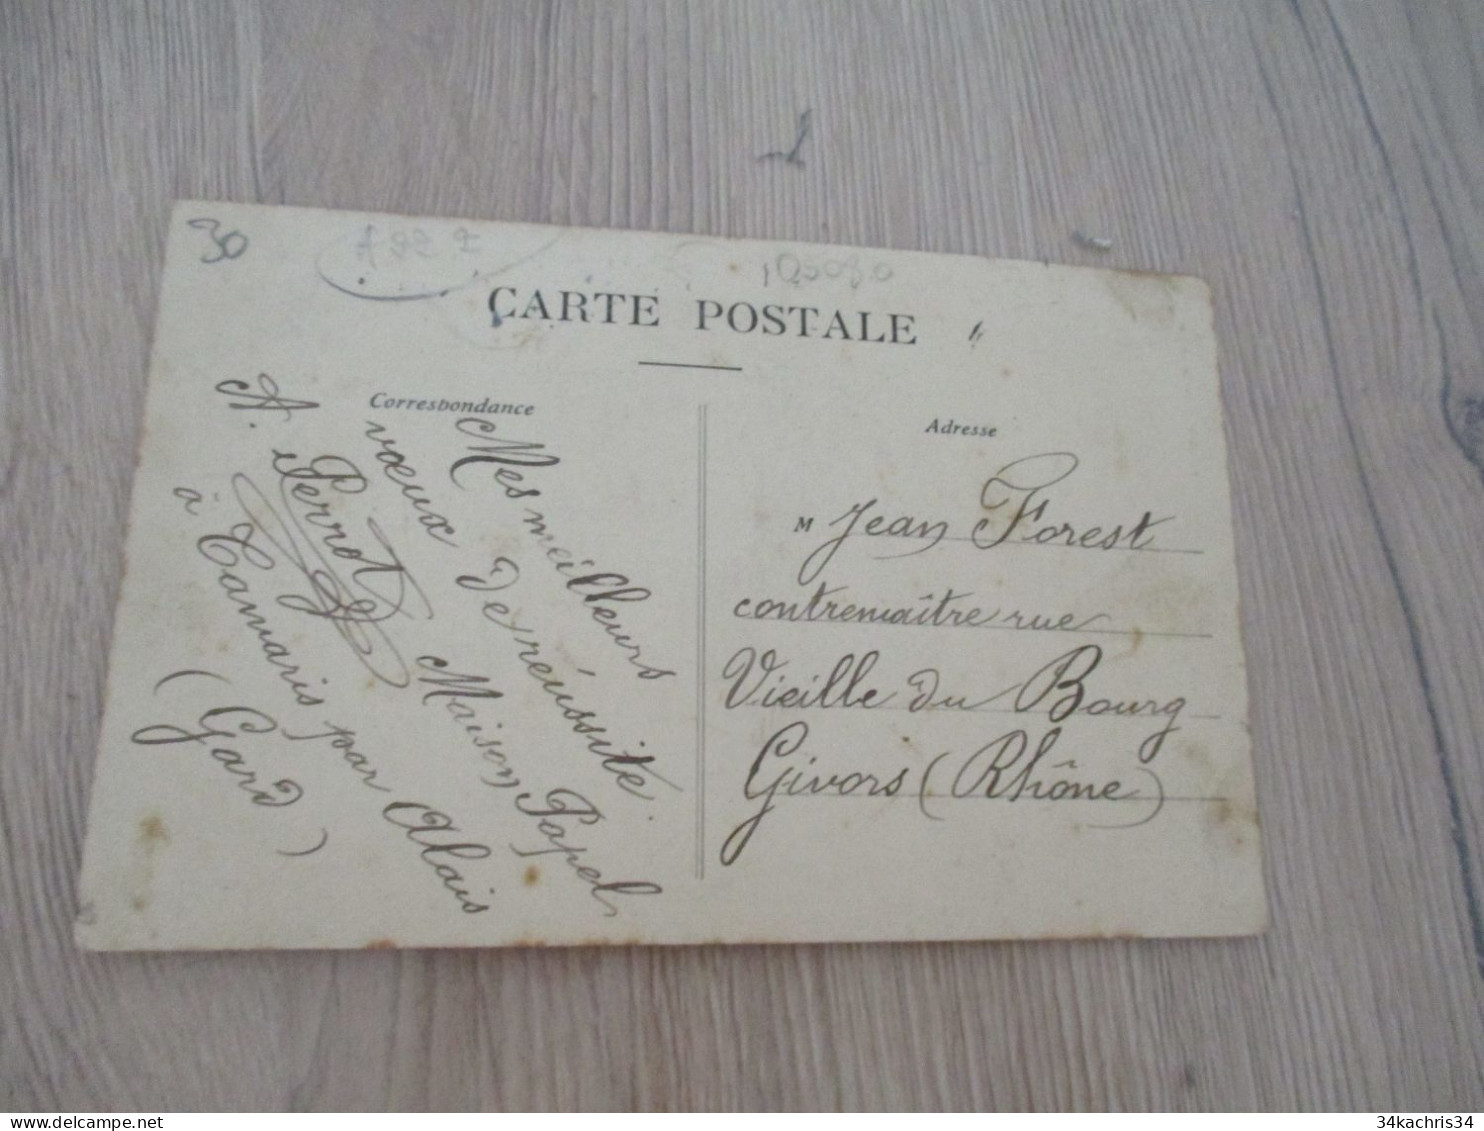 30
CARTE POSTALE
Correspondance
Mes meilleurs
vœux de réussite
A. Perrot Maison Papel
à Tamaris par Alais
(Gard)
Adresse
M Jean Forest
contremaître rue
Vieille du Bourg
Givors (Rhône)
34kachris34